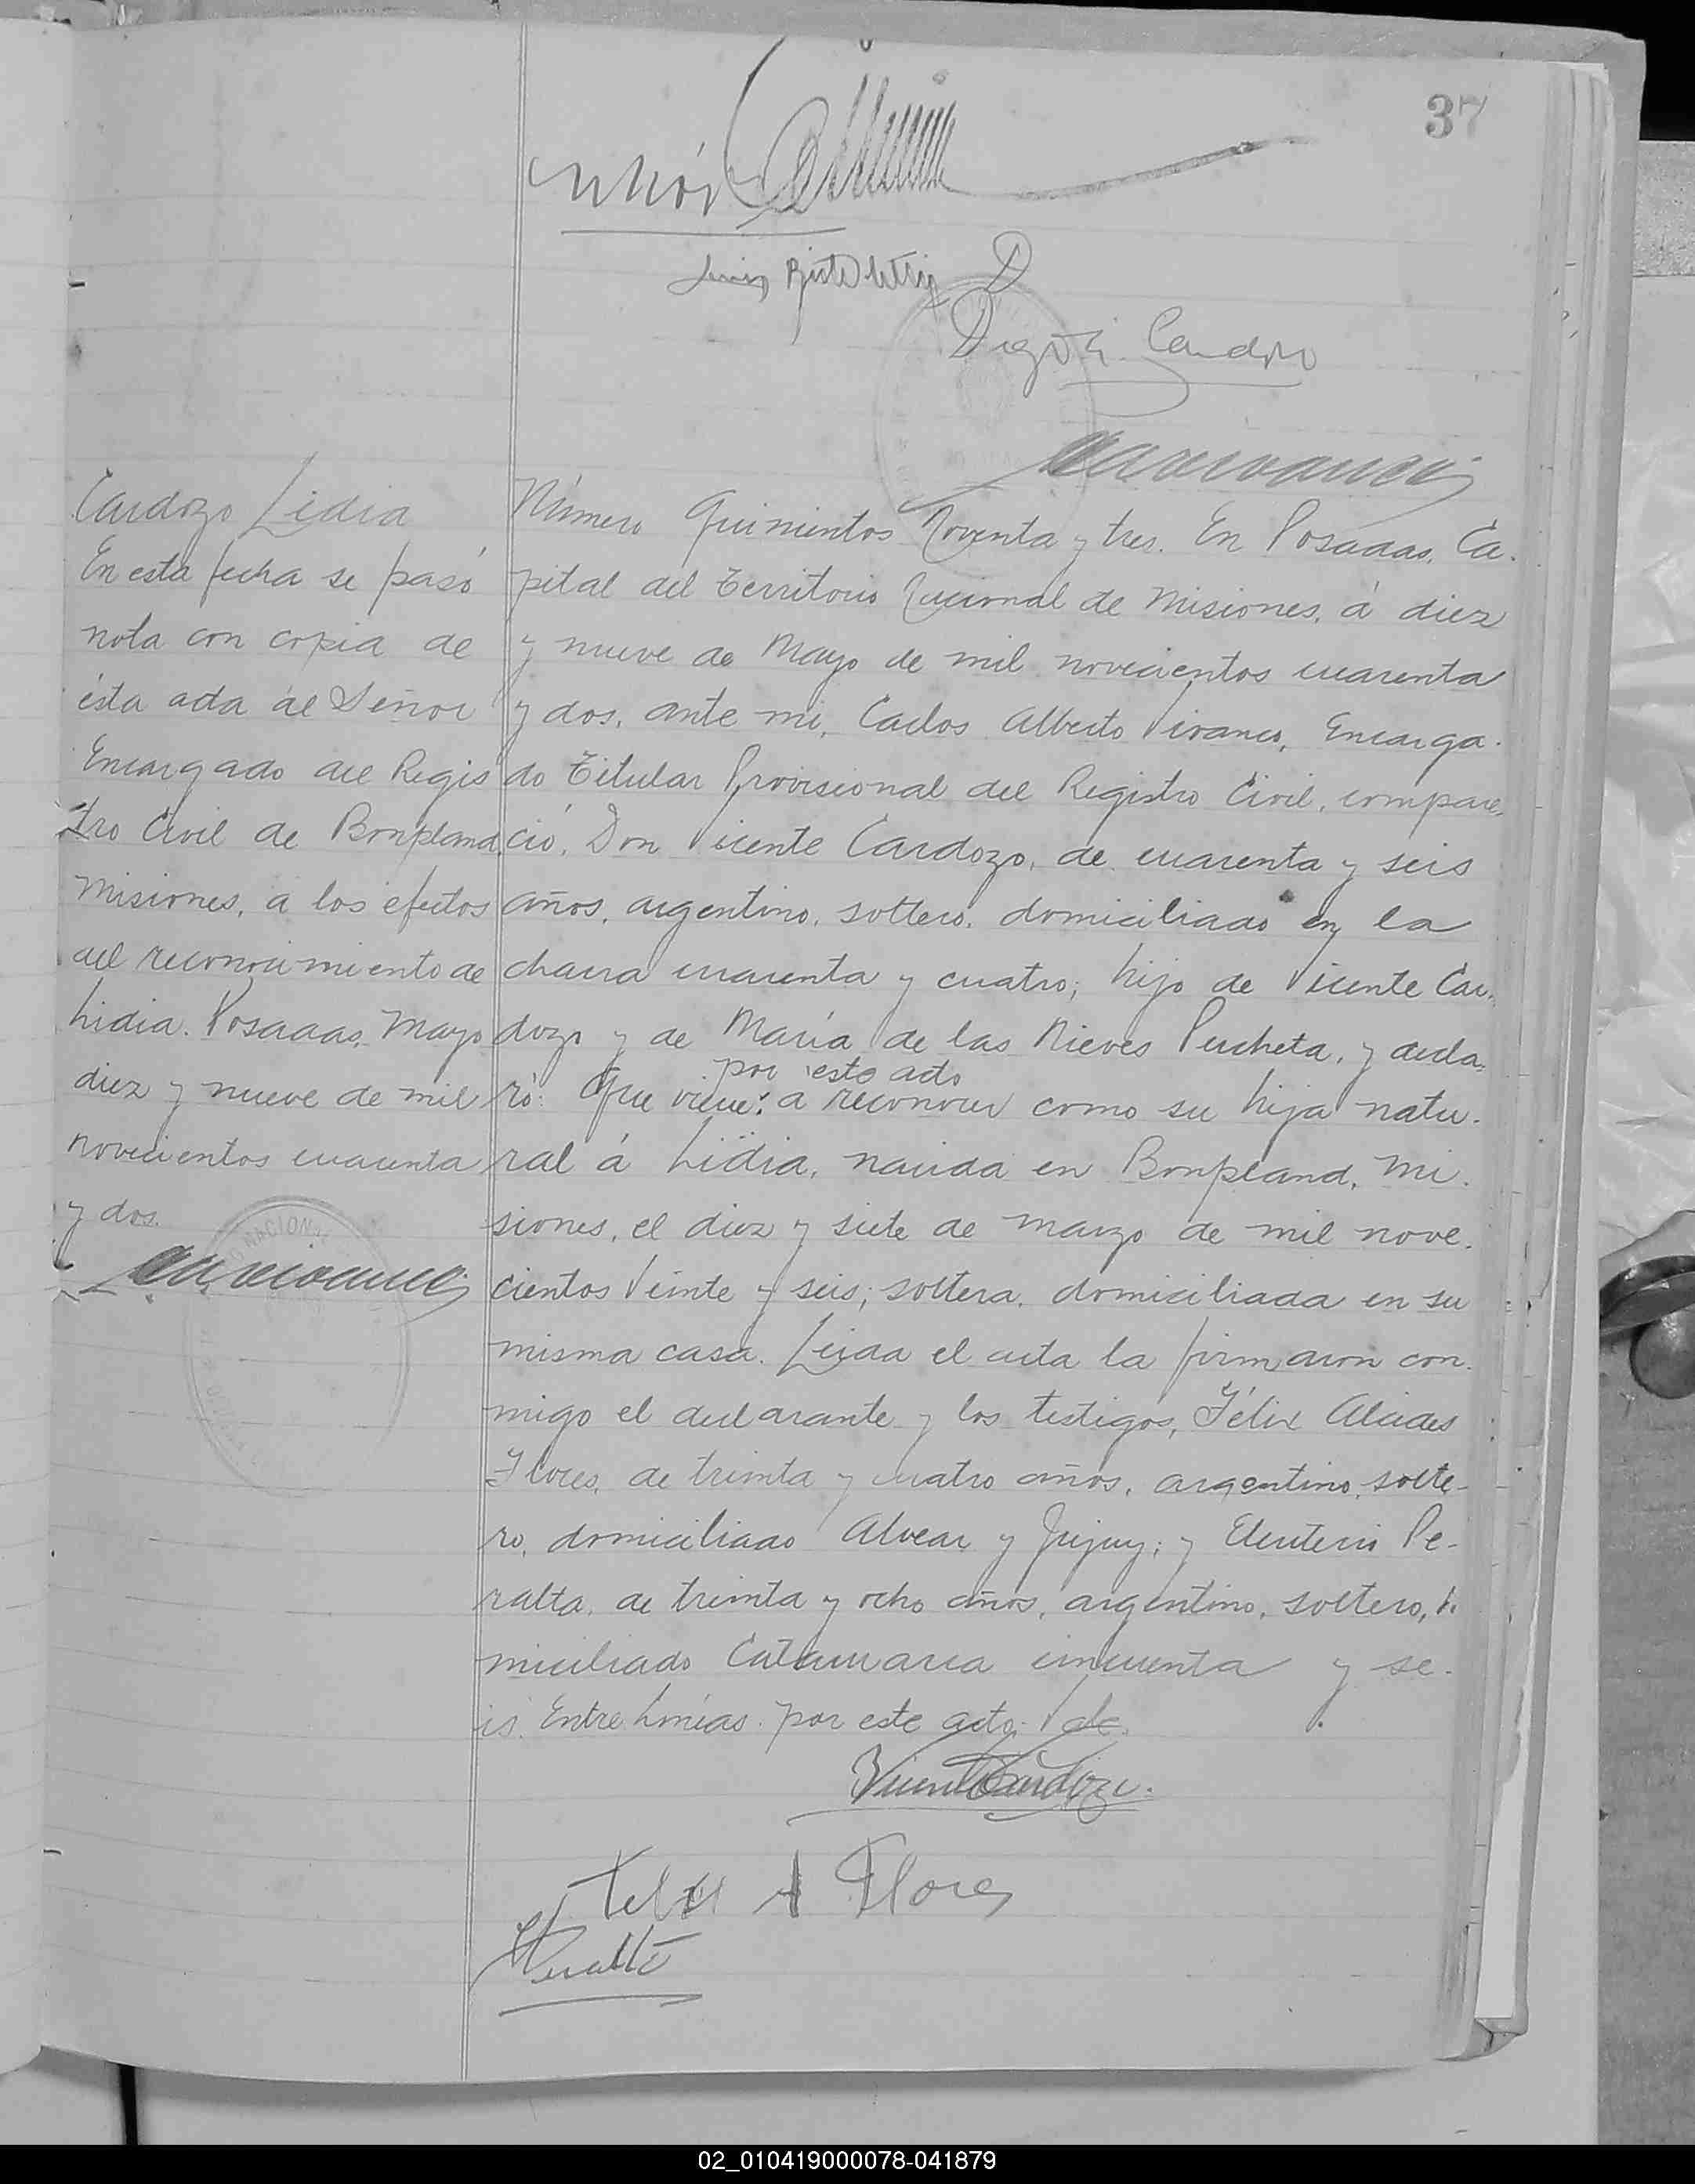 37
Cardozo Lidia
En esta fecha se pasó
nota con copia de
ésta acta al Señor
Encargado del Regis
tro Civil de Bonpland,
Misiones, a los efectos
del reconocimiento de
Lidia. Posadas, Mayo
diez y nueve de mil
novecientos cuarenta
y dos.
Número Quinientos Noventa y tres. En Posadas, Ca-
pital del Territorio Nacional de Misiones, á diez
y nueve de Mayo de mil novecientos cuarenta
y dos, ante mi, Carlos Alberto Vivanco, Encarga-
do Titular Provisional del Registro Civil, compare-
ció, Don Vicente Cardozo, de cuarenta y seis
años, argentino, soltero, domiciliado en la
chacra cuarenta y cuatro; hijo de Vicente Car-
dozo y de María de las Nieves Pucheta, y decla-
por este acto
ró: Que viene: a reconocer como su hija natu-
ral á Lidia, nacida en Bonpland, Mi-
siones, el diez y siete de marzo de mil nove-
cientos veinte y seis; soltera, domiciliada en su
misma casa. Leída el acta la firmaron con-
migo el declarante y los testigos, Félix Alcides
Flores, de treinta y cuatro años, argentino, solte-
ro, domiciliado Alvear y Jujuy; y Eleuterio Pe-
ralta, de treinta y ocho años, argentino, soltero,
miciliado Catamarca cincuenta y se-
is. Entre líneas: por este acto: Vale.
Vicente Cardozo.
Felix A Flores
Peralta
02_010419000078-041879